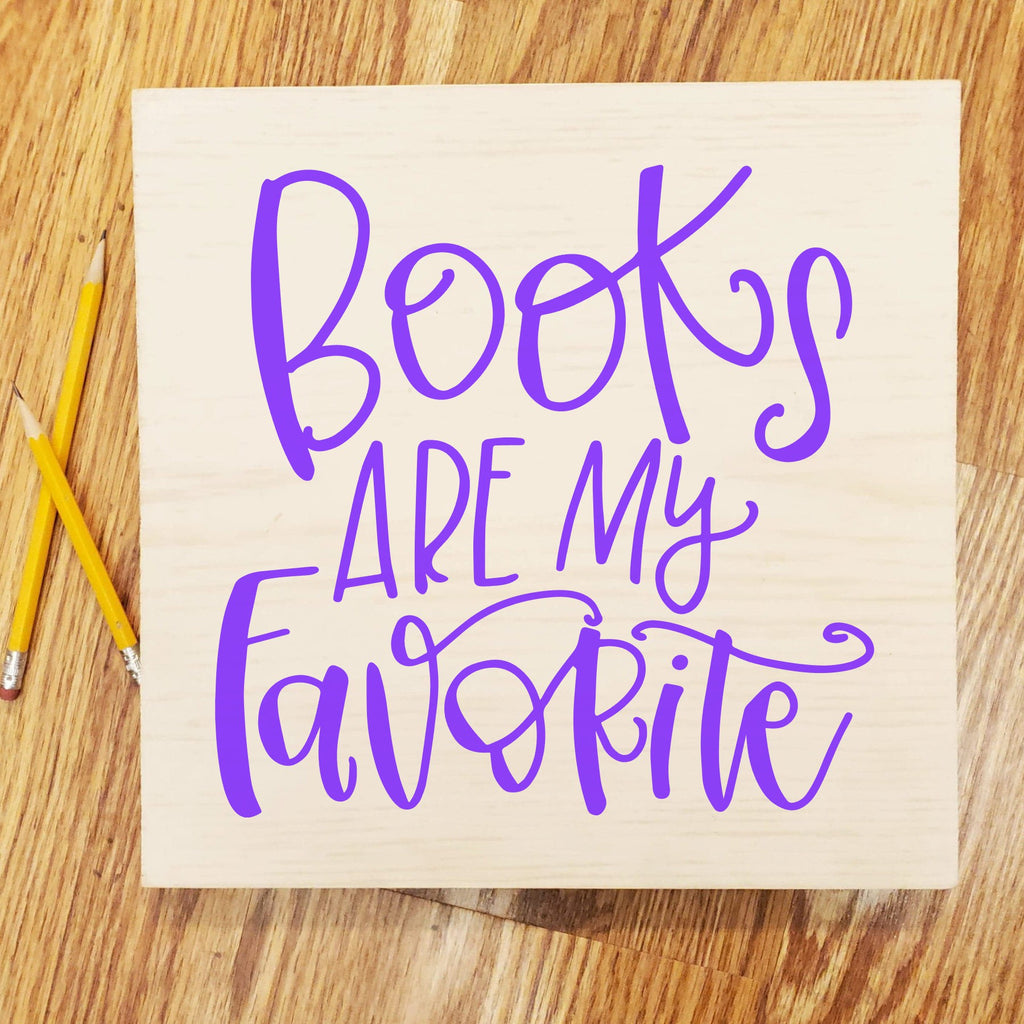 Books
ARE My
Favorite